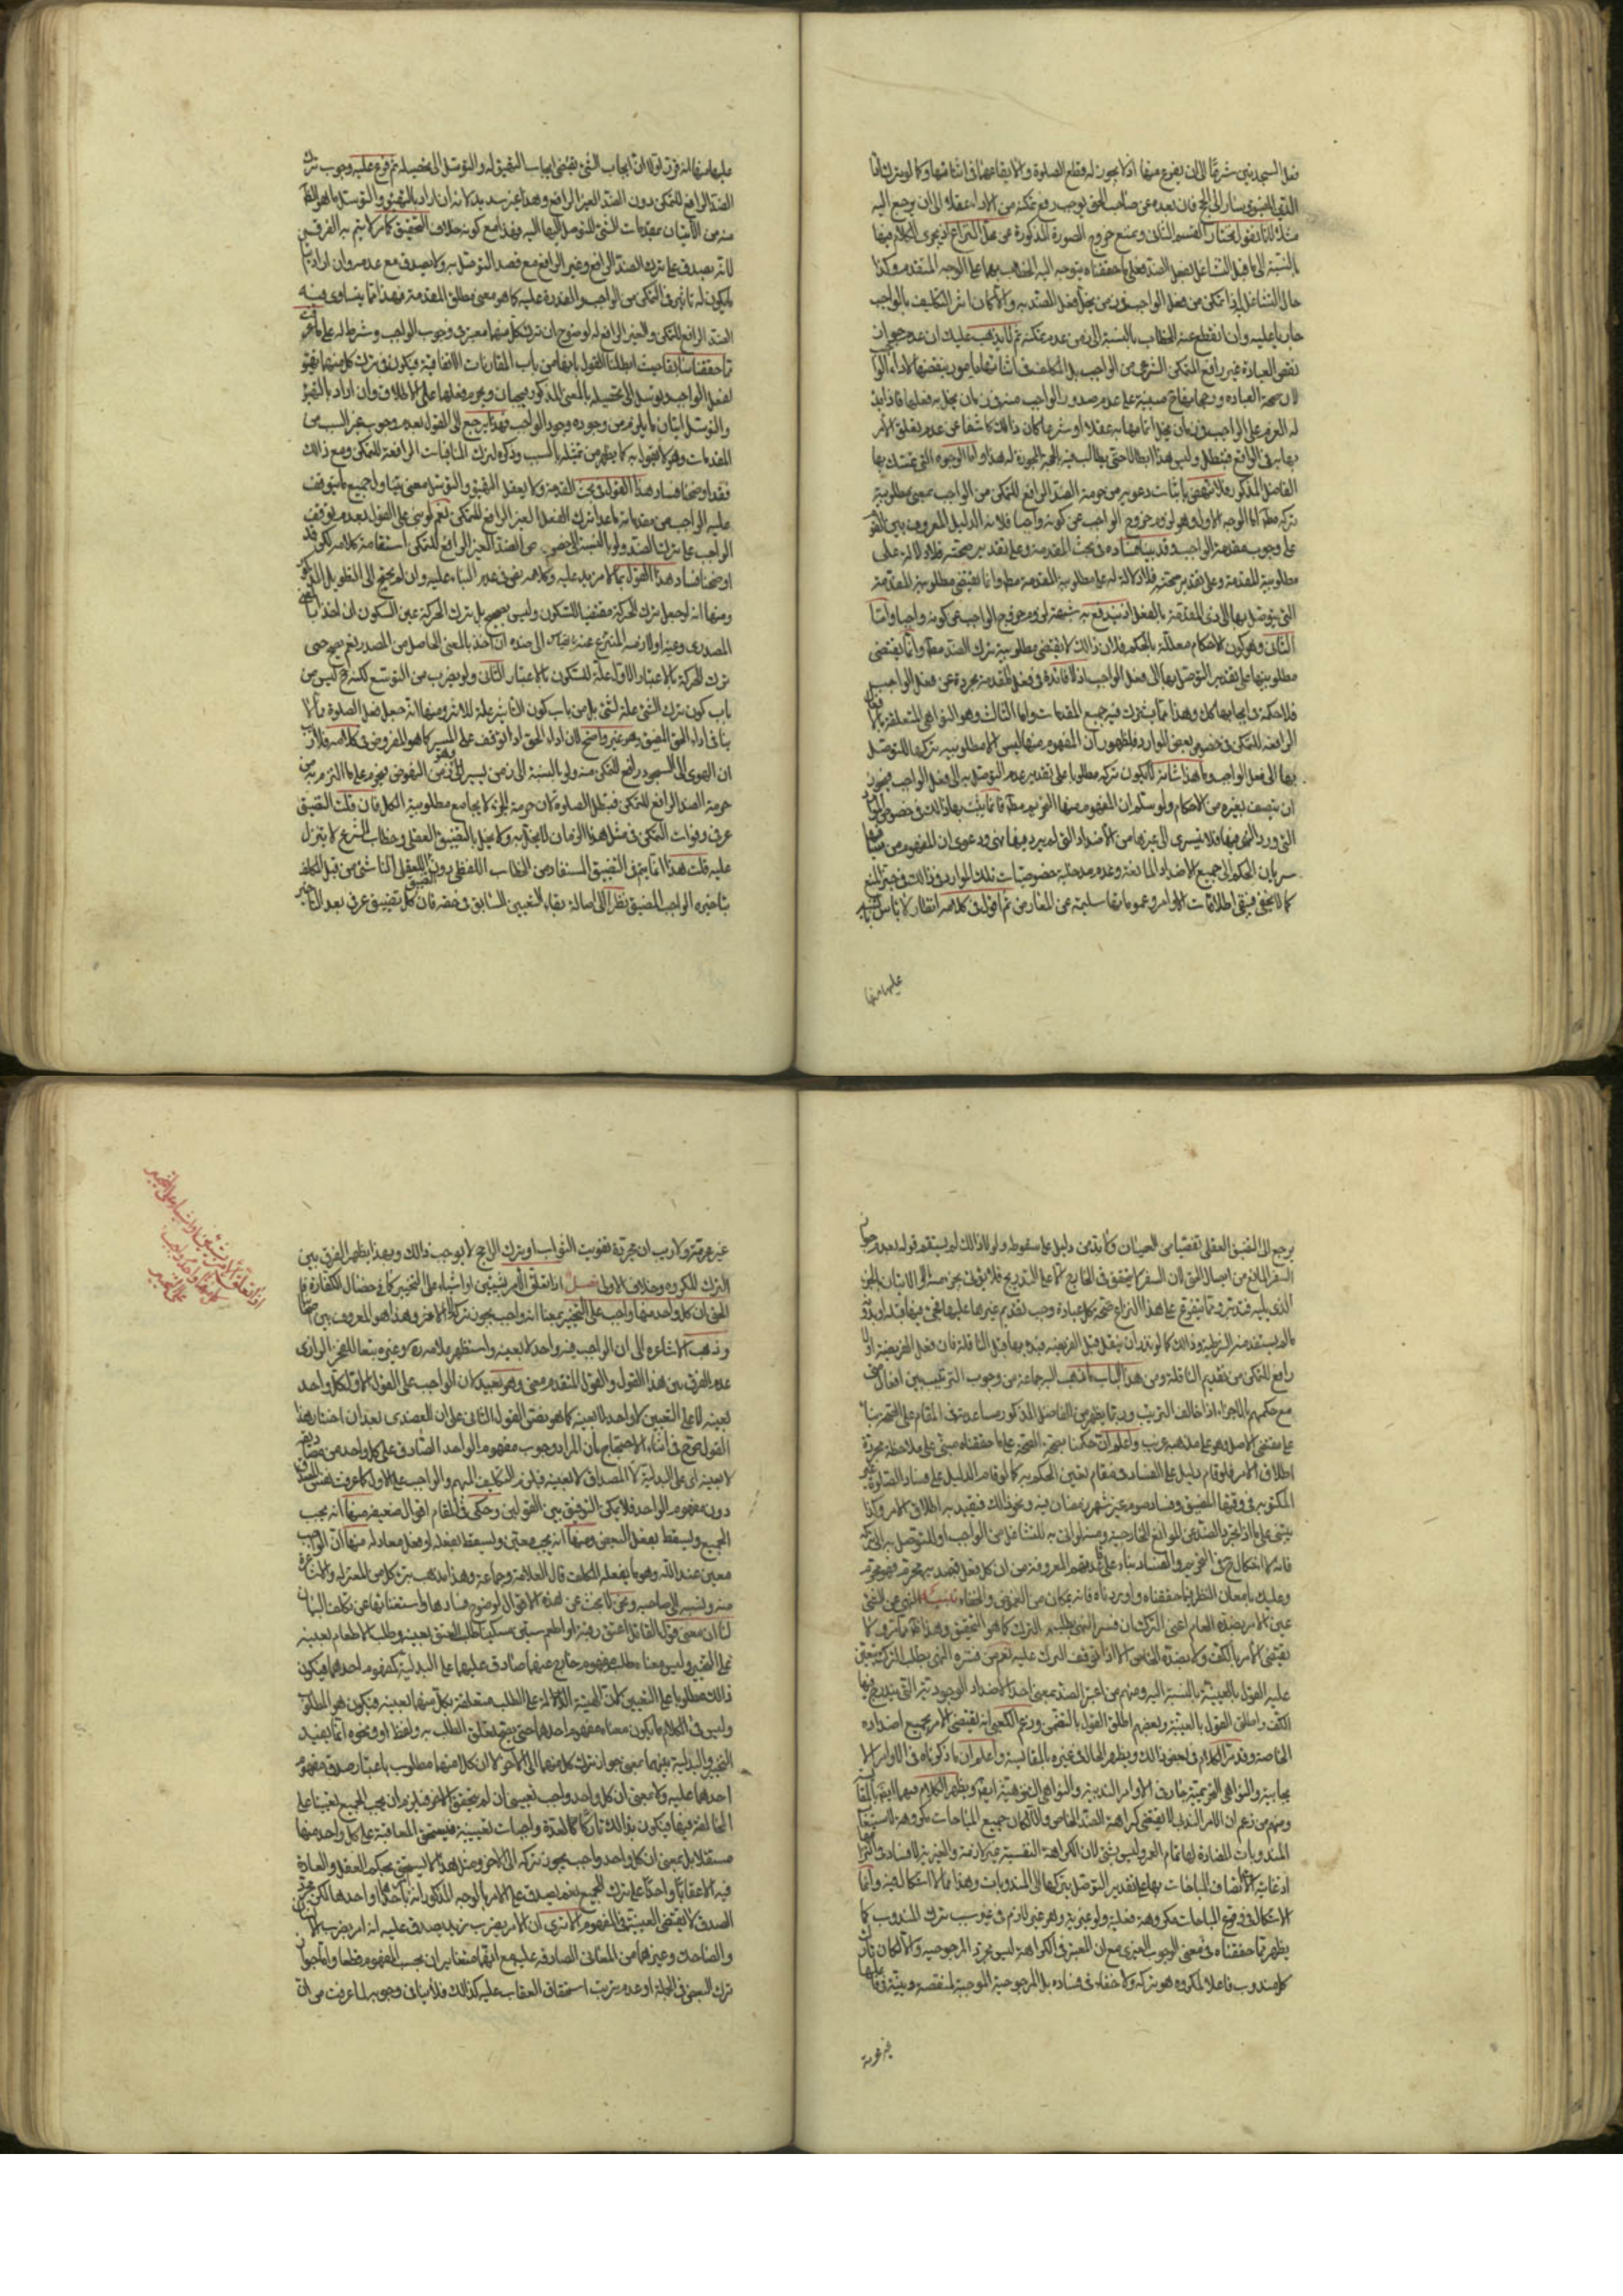 فعل السجدتين شرعًا الى ان يفرغ منها اذ لا يجوز له قطع الصلوة والا بقاعها في اثنائها وكما لو ترك
مثل لانا نقول نختار القسم الثاني ونمنع خروج الصورة المذكورة عن محل النزاع اذ يجري الكلام فيها
بالنسبة الى ما قبل التشاغل بفعل الضد فعلى ما حققناه يتوجه اليه الخطاب بهما على الوجه المتقدم وكذا
حال التشاغل اذا تمكن من فعل الواجب
جاريا عليه وان انقطع عنه الخطاب بالنسبة الى زمن عدم تمكنه ثم لا يذهب عليك ان عدم جواز
نقض العبادة غير رافع للتمكن الشرعي من الواجب بل المكلف في اثنائها مامور بنقضها لاداء الواجب
بها في الواقع فتبطل وليس هذا ابطالا حتى يطالب فيه بالجهة المجوزة له هذا واما الوجوه التي تمسك بها
الفاضل المذكور فلا تنهض باثبات دعويه من حرمة الضد الرافع للتمكن من الواجب بمعنى مطلوبية
تركه مطلقا اما الوجه الاول وهو لزوم خروج الواجب عن كونه واجبا فلانه الدليل المعروف بين القوم
على وجوب مقدمة الواجب وقد بينا فساده في بحث المقدمة وعلى تقدير صحته فلا دلالة له على
مطلوبية المقدمة مطلقا وانما يقتضي مطلوبية المقدمة
التي يتوصل بها الى ذي المقدمة بالفعل اذ به يندفع شبهة لزوم خروج الواجب عن كونه واجبا واما
الثاني وهو كون الاحكام معللة بالحكم فلان ذلك لا يقتضي مطلوبية ترك الضد مطلقا وانما يقتضي
مطلوبيتها على تقدير التوصل بها الى فعل الواجب اذ لا فائدة في فعل المقدمة مجردة عن فعل الواجب
فلا حكمة في ايجابها كك وهذا مما يشترك فيه جميع المقدمات واما الثالث وهو النواهي المتعلقة بالافعال
الرافعة للتمكن في خصوص بعض الموارد فلظهور ان المفهوم منها ليس الا مطلوبية تركها للتوصل
بها الى فعل الواجب وما هذا شانه لا يكون تركه مطلوبا على تقدير عدم التوصل به الى فعل الواجب فيجوز
ان يتصف بغيره من الاحكام ولو سلم ان المفهوم منها التحريم مطلقا فانما يثبت بها ذلك في خصوص الموارد
التي ورد النهي فيها فلا يسري الى غيرها من الاضداد التي لم يرد فيها نهي ودعوى ان المفهوم من
سريان الحكم الى جميع الاضداد المانعة وعدم مدخلية خصوصيات تلك الموارد في ذلك في حيز المنع
كما لا يخفى فتبقى اطلاقات الاوامر وعموماتها سليمة عن المعارض ثم اقول في كلامه انظار لا باس بالتنبيه
عليها منها
عليها منها انه فرق اولا ان ايجاب الشئ يقتضي ايجاب التهيؤ له والتوصل الى تحصيله ثم فرع عليه وجوب ترك
الضد الرافع للتمكن دون الضد الغير الرافع وهذا غير سديد لانه ان اراد بالتهيؤ والتوصل ما هو الظاهر
منه من الاتيان بمقدمات الشئ للتوصل اليها اليه فهذا مع كونه خلاف التحقيق كما مر لا يتم به الفرق بين
لانه يصدق على ترك الضد الرافع وغير الرافع مع قصد التوصل به ولا يصدق مع عدمه وان اراد به
ما يكون له تاثير في التمكن من الواجب والقدرة عليه كما هو معنى مطلق المقدمة فهذا مما يتساوى فيه
الضد الرافع للتمكن والغير الرافع له لوضوح ان ترك كل منهما معتبر في وجود الواجب وشرط له على ما عرفت
مما حققناه سابقا حيث ابطلنا القول بانهما من باب المقارنات الاتفاقية فيكون في ترك كل منهما تهيؤ
لفعل الواجب وتوصل الى تحصيله بالمعنى المذكور فيجبان ويحرم فعلهما على الاطلاق وان اراد بالتهيؤ
والتوصل اتيان ما يلزم من وجوده وجود الواجب فهذا يرجع الى القول بعدم وجوب غير السبب من
المقدمات وهو لا يقول به كما يظهر من تمثيله بالسبب وذكره لترك المنافيات الرافعة للتمكن ومع ذلك
فقد اوضحنا فساد هذا القول في بحث المقدمة ولا يعقل للتهيؤ والتوصل معنى يتناول جميع ما يتوقف
عليه الواجب من مقدماته ما عدا ترك الفعل الغير الرافع للتمكن نعم لو بنى على القول بعدم توقف
الواجب على ترك الضد ولو بالنسبة الى خصوص الضد الغير الرافع للتمكن استقامة كلامه لكن قد
اوضحنا فساد هذا القول بما لا مزيد عليه وكلامه نص في عدم البناء عليه وان لم يحتج الى التطويل الذي
ومنها انه جعل ترك الحركة مقتضيا للسكون وليس بصحيح بل ترك الحركة عين السكون ان اخذ بالمعنى
المصدري وعينه او لازمه المنتزع عنه بقياس الى ضده ان اخذ بالمعنى الحاصل من المصدر نعم يصح
ترك الحركة بالاعتبار الاول علة للسكون بالاعتبار الثاني ولو بضرب من التوسع لكنه ح ليس من
باب كون ترك الشئ علة لشئ بل من باب كون التاثير علة للاثر ومنها انه جعل فعل الصلوة
ينافي اداء الحق المضيق وهو غير واضح لان اداء الحق اذا توقف على المسير كما هو المفروض في كلامه فلا ريب
ان الهوى الى السجود رافع للتمكن منه ولو بالنسبة الى زمن يسير الى زمن النهوض فيحرم على ما التزم به من
حرمة الضد الرافع للتمكن فتبطل الصلوة لان حرمة الجزء لا يجامع مطلوبية الكل فان قلت التضيق
عرفي وفوات التمكن في مثل هذا الزمان لا يخل به ولا يخل بالتضيق العقلي وخطاب الشرع لا يتنزل
عليه قلت هذا انما يتم في التضيق المستفاد من الخطاب اللفظي دون التضيق العقلي الناشئ من قبل المكلف
بتاخيره الواجب المضيق نظرا الى اصالة بقاء التعيين السابق في حقه فان كل تضييق عرفي بعد التاخير
يرجع الى التضيق العقلي تقصيا من العصيان ولا بد من دليل على سقوطه ولولا ذلك لم يستقم قوله بعدم جواز
السفر المانع من ايصال الحق لان السفر لا يتحقق في الخارج الا على التدريج فلا يفوت بجزء منه الا الاتيان بالجزء
الذي يليه فتدبر ومما يتفرع على هذا النزاع صحة كل عبادة وجب تقديم غيرها عليها
ما لم يستفد منه الشرطية وذلك كما لو نذر ان يتنفل قبل الفريضة فبدء بها قبل النافلة فان فعل الفريضة اذن
رافع للتمكن من تقديم النافلة ومن هذا الباب ما ذهب اليه جماعة من وجوب الترتيب بين افعال
مع حكمهم بالاجزاء اذا خالف الترتيب وربما يظهر من الفاضل المذكور مساعدته في المقام على الصحة بناء
على مقتضى الاصل وهو على مذهبه غريب واعلم ان حكمنا بصحة الضد على ما حققناه مبني على ملاحظة مجردة
اطلاق الامر فلو قام دليل على الفساد في مقام تعين الحكم به كما لو قام الدليل على فساد الصلوة غير
المكتوبة في وقتها المضيق وفساد صوم غير شهر رمضان فيه ونحو ذلك فيقيد به اطلاق الامر وكذا
فانه لا اشكال ح في التحريم والفساد بناء على قاعدتهم المعروفة من ان كل فعل قصد به محرم فهو محرم
وعليك بامعان النظر فيما حققناه واوردناه فانه بمكان من الغموض والخفاء تنبيه النهي عن الشئ
عين الامر بضده العام اعني الترك ان فسر النهي بطلب الترك كما هو التحقيق وهذا ظاهر مما مر ولا
يقتضي الامر بالكف ولا بضده الخاص الا اذا توقف الترك عليه نعم من فسره النهي بطلب الترك يتعين
عليه القول بالعينية بالنسبة اليه ومنهم من اعتبر الضد بمعنى احد الاضداد الوجودية التي يندرج فيها
الكف واطلق القول بالعينية وبعضهم اطلق القول بالتضمن وزعم الكعبي انه يقتضي الامر بجميع اضداده
الخاصة وقد مر الكلام في تحقيق ذلك ويظهر الحال في غيره بالمقايسة واعلم ان ما ذكرناه في الاوامر الا
يجابية والنواهي التحريمية جار في الاوامر الندبية والنواهي التنزيهية ايضا ويظهر الكلام فيهما ايضا بالمقايسة
ومنهم من زعم ان الامر الندبي لا يقتضي كراهة الضد الخاص والا لكان جميع المباحات مكروهة لاستيعاب
المندوبات المضادة لها تمام العمر وليس بشئ لان الكراهة النفسية غير لازمة والغيرية لا فساد في التزامها
اذ غايته اتصاف المباحات بها على تقدير التوصل بتركها الى المندوبات وهذا مما لا اشكال فيه وانما
الاشكال في وقوع المباحات مكروهة فعلية ولو غيرية وهو غير لازم في غير سبب ترك المندوب كما
يظهر مما حققناه في معنى الوجوب الغيري مع ان المعتبر في الكراهة ليس مجرد المرجوحية والا لكان تارك
كل مندوب فاعلا لمكروه هو تركه ولا خفاء في فساده بل المرجوحية الموجبة لمنقصة دينية في فاعلها
غير محرمة
غير محرمة ولا ريب ان مجرد تفويت الثواب او ترك الراجح لا يوجب ذلك وبهذا يظهر الفرق بين
الترك المكروه وخلاف الاولى فصل اذا تعلق الامر بشيئين او اشياء على التخيير كما في خصال الكفارة
الحق ان كل واحد منها واجب على التخيير بمعنى انه واجب يجوز تركه الى الاخر وهذا هو المعروف بين اصحابنا
وذهب الاشاعرة الى ان الواجب فيه واحد لا بعينه واستظهر العلامة ره وغيره تبعا للفخر الرازي
عدم الفرق بين هذا القول والقول المتقدم معنى وهو بعيد لان الواجب على القول الاول كل واحد
بعينه لا على التعيين لا واحد لا بعينه كما هو نص القول الثاني على ان العضدي بعد ان اختار هذا
القول صرح في اثناء الاحتجاج بان المراد وجوب مفهوم الواحد الصادق على كل واحد من
لا بعينه اي على البدلية لا المصداق لا بعينه فيلزم التكليف بالمبهم والواجب على الاول كما عرفت نفس المصداق
دون مفهوم الواحد فلا يمكن التوفيق بين القولين وحكى في المقام اقوال ضعيفة منها انه يجب
الجميع ويسقط بفعل البعض ومنها انه يجب معين ويسقط بفعله او فعل معادله منها ان الواجب
معين عند الله وهو ما يفعله المكلف قال العلامة وجماعة وهذا مذهب تبرء كل من المعتزلة والاشاعرة
منه ونسبه الى صاحبه ونحن لا نبحث عن هذه الاقوال لوضوح فسادها واستغنائها عن تكلف البيان
لنا ان معنى قول القائل اعتق رقبة او اطعم ستين مسكينا طلب العتق بعينه وطلب الاطعام بعينه
على التخيير وليس معناه طلب مفهوم خارج عنهما صادق عليهما على البدلية كمفهوم احدهما فيكون
ذلك مطلوبا على التعيين لان الهيئة الدالة على الطلب متعلقة بكل منهما بعينه فيكون هو المطلوب
وليس في الكلام ما يكون معناه مفهوم احدهما حتى يصح تعلق الطلب به ولفظ او ونحوه انما يفيد
التخيير والبدلية بينهما بمعنى جواز ترك كل منهما الى الاخر لا ان كلا منهما مطلوب باعتبار صدق مفهوم
احدهما عليه ولا بمعنى ان كل واحد واجب تعييني ان لم يتحقق الاخر فيلزم ان يجب الجميع تعيينا على
المخالفة فيها فيكون بذلك تاركا لعدة واجبات تعيينية فيستحق المعاقبة على كل واحد منها
مستقلا بل بمعنى ان كل واحد واجب يجوز تركه الى الاخر ومثل هذا لا يستحق بحكم العقل والعادة
فيه الا عقابا واحدا على ترك الجميع نعم يصدق على الامر بالوجه المذكور انه امر باحدها واحدها لكن مجرد
الصدق لا يقتضي العينية في المفهوم الا ترى ان الامر بضرب زيد يصدق عليه انه امر بضرب
والضاحك وغيرهما من المعاني الصادقة عليه مع انهما متغايران بحسب المفهوم قطعا واما جواز
ترك البعض في الجملة او عدم ترتب استحقاق العقاب عليه كذلك فلا ينافي وجوبه لما عرفت من ان